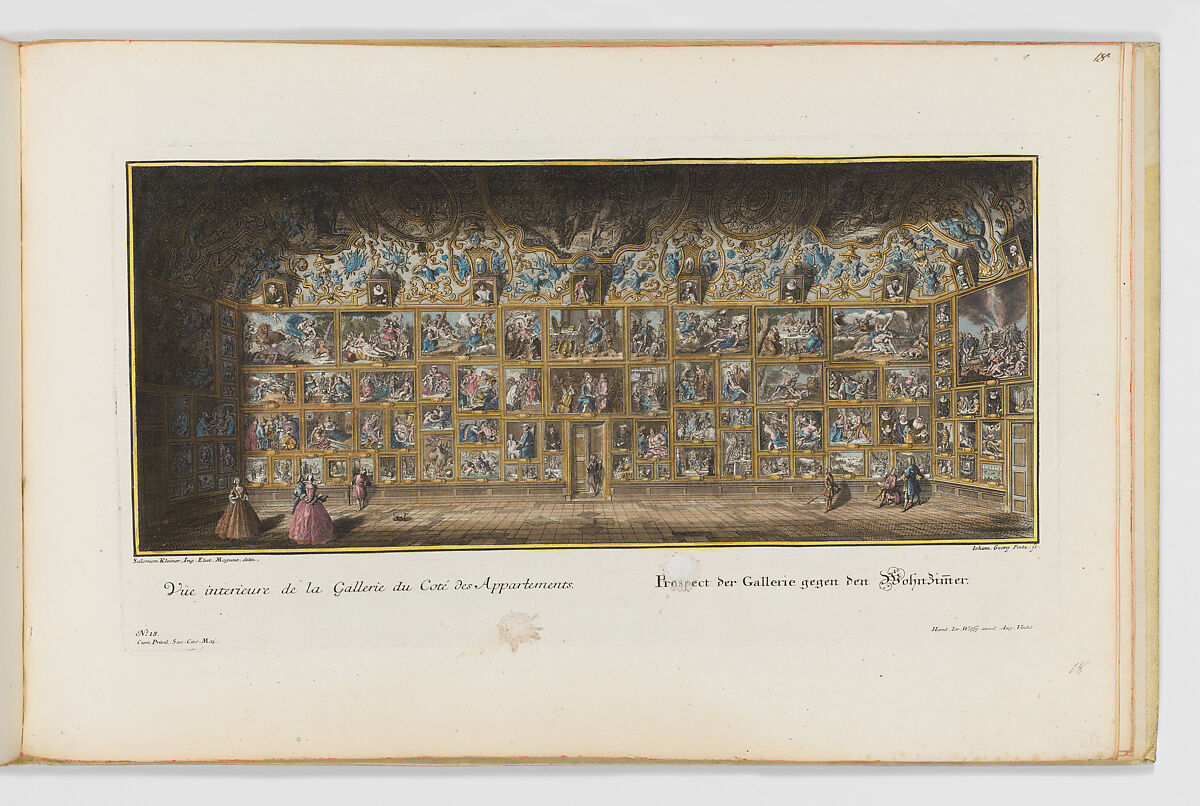 18
Salomon Kleiner. Ing. Elect. Mogunt. delin.
Iohann. Georg. Pintz. sc.
Vüe interieure de la Gallerie du Coté des Appartements.
Prospect der Gallerie gegen den Wohn Zim̄er.
N.º 18.
Cum. Privil. Sac. Cæs. Maj.
Hæred. Ier. Wolffij excud. Aug. Vindel.
18